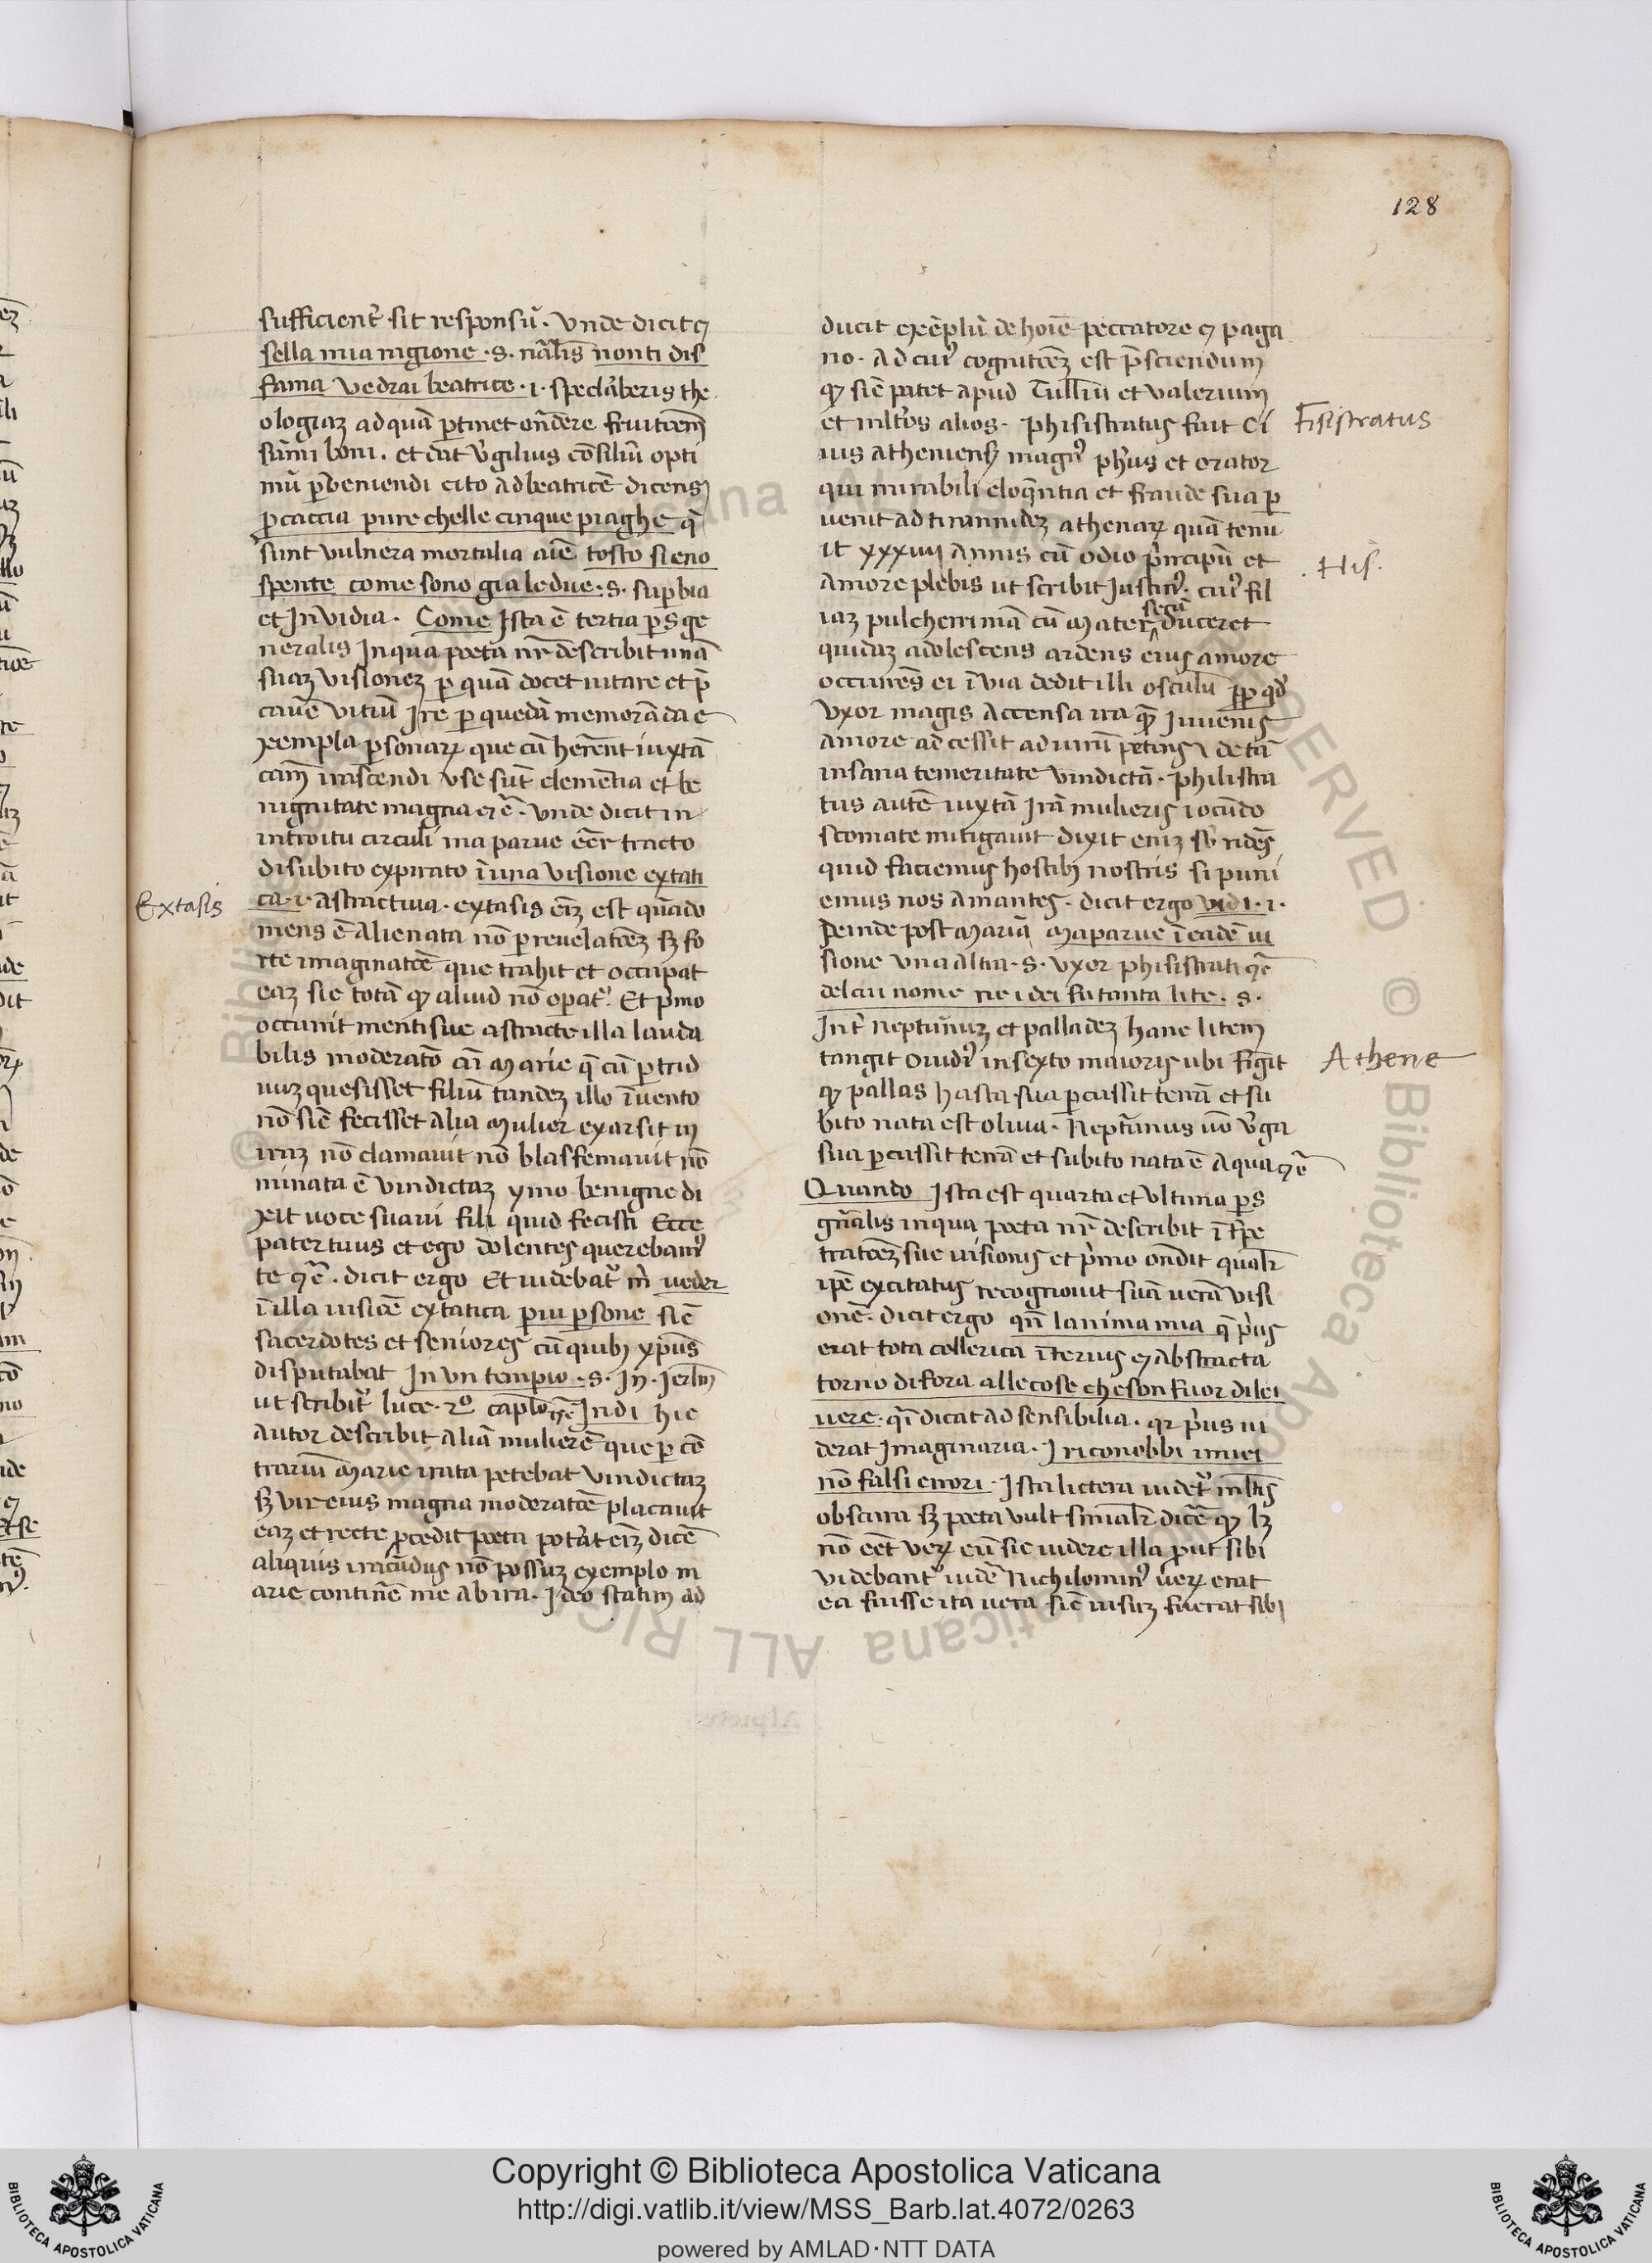 128
sufficient᷑ sit responsũ. Vnde dicit ꝯ
sella mia ragione .s. nãlis non ti dis
fama vedrai beatrice .i. speclãberis the
ologiaȝ ad quã ꝑtinet oñdere fruitõem
sũmi boni. et dat v̾gilius cõsiliũ opti
mũ ꝑveniendi cito ad beatricẽ dicens
ꝓcaccia pure chelle cinque piaghe q̃
sunt vulnera mortalia aĩe tosto sieno
spente come sono gia le due .s. suꝑbia
et Invidia. Come Ista ẽ tertia ꝑs ge
neralis In qua poeta nr̃ describit unã
suaȝ visioneȝ ꝑ quã docet uitare et p̃
cavẽ vitiũ Ire ꝑ quedã memorãda e
xempla ꝑsonaꝝ que cũ her̃ent iuxtã
cam̃ irascendi vse sũt clemẽtia et be
nignitate magna ꝛc̃. Vnde dicit in
introitu circuli ma parve eẽr tracto
di subito expirato ĩ una visione extati
ca .i. astractiua. extasis eĩȝ est quãdo
Extasis
mens ẽ alienata nõ ꝑ revelatõeȝ sȝ fo
rte imaginatõe que trahit et occupat
eaȝ sic totã qꝫ aliud nõ oꝑat᷑. Et pͥmo
occurrit menti sue astracte illa lauda
bilis moderatõ aĩ Marie q̃ cũ ꝑ trid
uuȝ quesisset filiũ tandeȝ illo ĩvento
nõ siẽ fecisset alia mulier exarsit in
iraȝ nõ clamavit nõ blasfemavit nõ
minata ẽ vindictaȝ ymo benigne di
xit uoce suavi fili quid fecisti Ecce
pater tuus et ego dolentes querebam᷒
te ꝛc̃. dicit ergo Et uidebat᷑ m̃ ueder
ĩ illa uisiõe extatica piu ꝑsone siẽ
sacerdotes et seniores cũ quibȝ xp̃us
disputabat In un tempio .s. In Ierl̃m
ut scribit᷑ luce .2º. cap̃lo ꝛc̃ Indi hic
autor describit aliã mulierẽ que ꝑ cõ
trariũ Marie irata petebat vindictaȝ
sȝ vir eius magna moderatõe placavit
eaȝ et recte ꝓcedit poeta pot̾at eĩȝ dicẽ
aliquis iracũdus nõ possuȝ exemplo m
arie continẽ me ab ira. Ideo statim ad
ducit exẽplũ de hoĩe peccatore ꝯ paga
no. Ad cui᷒ cognitõeȝ est p̃sciendum
qꝫ siẽ patet apud Tulliũ et Valerium
et ml̃tos alios. Phisistratus fuit Ci
Fisistratus
uis atheniensis magn᷒ ph̃us et orator
qui mirabili eloq̃ntia et fraude sua ꝑ
uenit ad tirannideȝ athenaꝝ quã tenu
it xxxiiij annis cũ odio pͥncipũ et
His.
amore plebis ut scribit Iustin᷒. cui᷒ fil
iaȝ pulcherrimã cũ mater secũ duceret
quidaȝ adolescens ardens eius amore
occurrẽs ei ĩ via dedit illi osculũ ꝓp qd̃
Vxor magis accensa ira q̃ȝ Iuvenis
amore accessit ad uirũ petẽs de tã
insana temeritate vindictã. Philistra
tus autẽ iuxtã Irã mulieris iocũdo
scomate mitigavit dixit eniȝ sb̾ridẽs
quid faciemus hostibȝ nostris si puni
emus nos amantes. dicit ergo vidi .i.
deinde post Mariã m apparve ĩ eadẽ ui
sione un altra .s. Vxor phisistrati ꝛc̃
del cui nome ne i dei fu tanta lite .s.
Int᷑ neptunuȝ et palladeȝ hanc litem
tangit ovidi᷒ in sexto maioris ubi fĩgit
Athene
qꝫ pallas hasta sua ꝑcussit terrã et su
bito nata est oliva. Neptãnus uõ v̾ga
sua ꝑcussit terrã et subito nata ẽ aqua ꝛc̃
Quando Ista est quarta et ultima ꝑs
gñalis in qua poeta nr̃ describit ĩt̾pe
tratõeȝ sue uisionis et pͥmo oñdit qualr̃
ip̃e excitatus recognovit suã uerã visi
onẽ. Dicit ergo qñ lanima mia q̃ pͥus
erat tota collerica ĩterius ꝯ abstracta
torno di fora alle cose che son fuor di lei
uere. q̃i dicat ad sensibilia. qꝛ pͥus ui
derat Imaginaria. I riconobbi i miei
nõ falsi errori. Ista lictera uidet᷑ ml̃tis
obscura sȝ poeta vult finalr̃ dicẽ qꝫ lȝ
nõ eẽt veꝝ eũ sic uidere illa ꝓut sibi
videbant᷑ uidẽ Nichilomin᷒ ueꝝ erat
ea fuisse ita uera siẽ uisuȝ fuerat sibi
Copyright © Biblioteca Apostolica Vaticana
http://digi.vatlib.it/view/MSS_Barb.lat.4072/0263
powered by AMLAD·NTT DATA
BIBLIOTECA APOSTOLICA VATICANA
BIBLIOTECA APOSTOLICA VATICANA